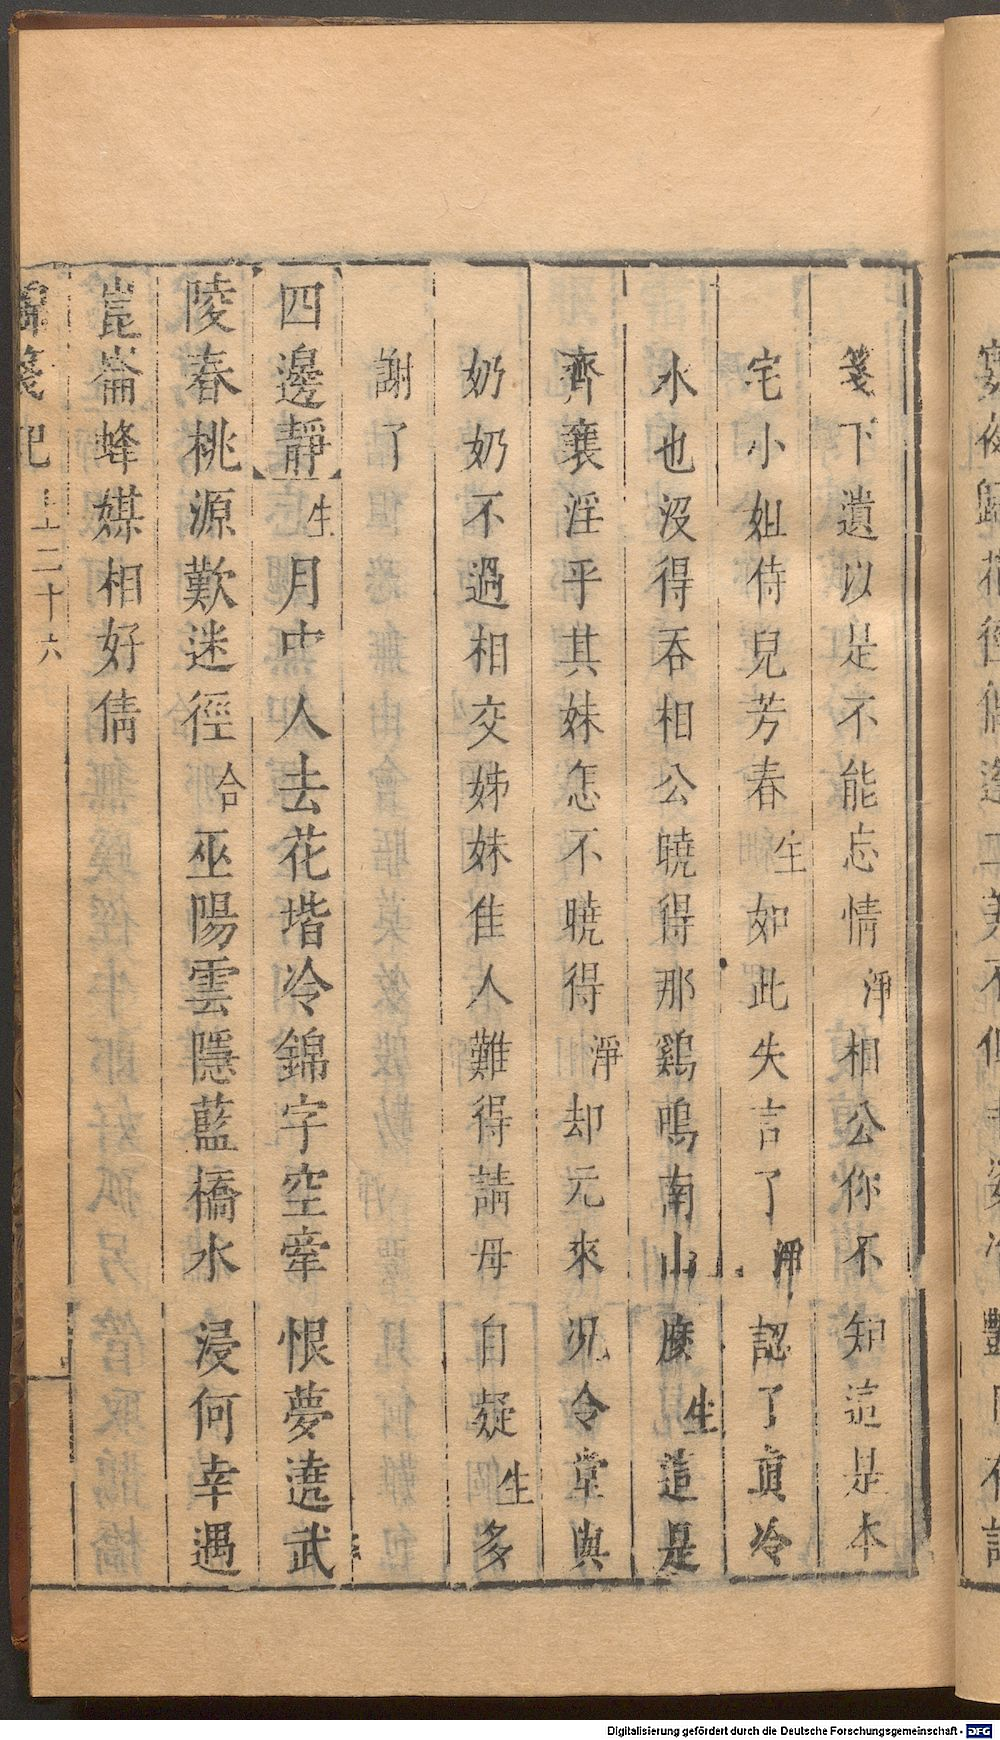 箋下遺以是不能忘情淨相公你不知這是本
宅小姐侍兒芳春生如此失言了淨認了真冷
水也沒得吞相公曉得那鷄鳴南山麽生這是
齊襄淫乎其妹怎不曉得淨却元來况令堂與
奶奶不過相交姊妹佳人難得請母自疑生多
謝了
四邊靜生月中人去花堦冷錦字空牽恨夢遶武
陵春桃源歎迷徑合巫陽雲隱藍橋水浸何幸遇
崑崙蜂媒相好倩
錦箋記 上二十六
Digitalisierung gefördert durch die Deutsche Forschungsgemeinschaft - DFG